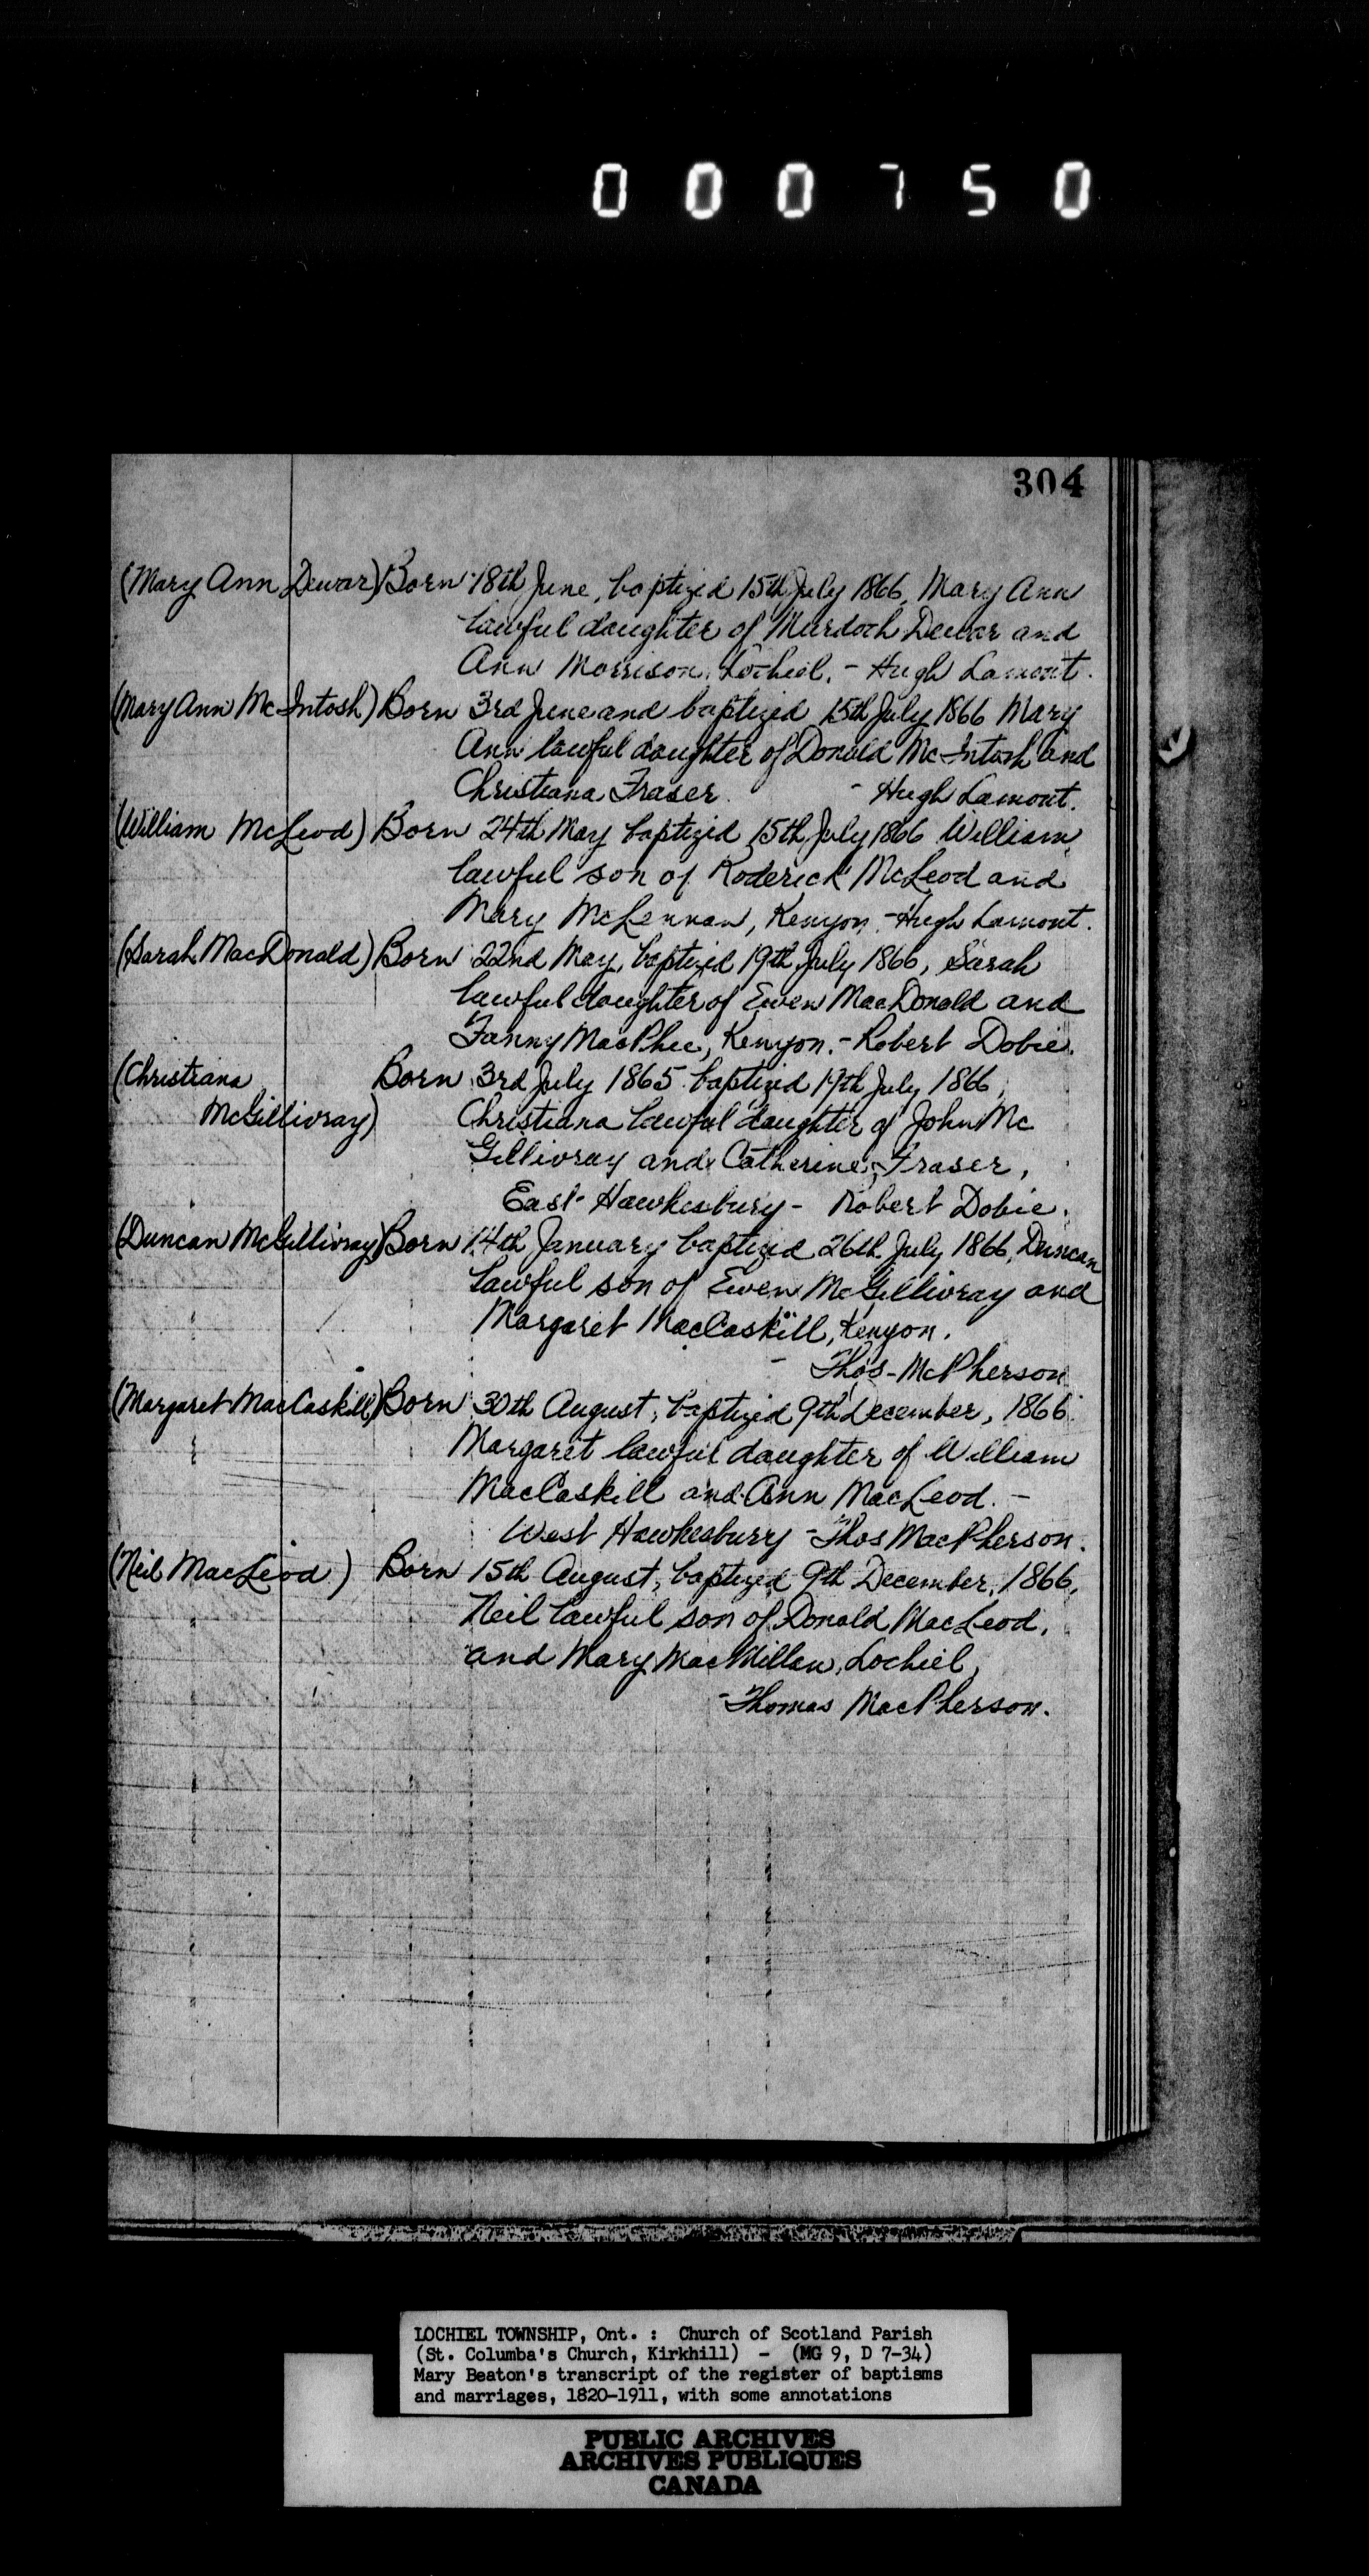 000750
304
(Mary Ann Dewar) Born 18th June, baptized 15th July 1866, Mary Ann
lawful daughter of Murdoch Dewar and
Ann Morrison, Lochiel. - Hugh Lamont.
(Mary Ann McIntosh) Born 3rd June and baptized 15th July 1866 Mary
Ann lawful daughter of Donald McIntosh and
Christiana Fraser. - Hugh Lamont.
(William McLeod) Born 24th May baptized 15th July 1866 William
lawful son of Roderick McLeod and
Mary McLennan, Kenyon. - Hugh Lamont.
(Sarah MacDonald) Born 22nd May, baptized 19th July 1866, Sarah
lawful daughter of Ewen MacDonald and
Fanny MacPhee, Kenyon. - Robert Dobie.
(Christiana Born 3rd July 1865 baptized 19th July 1866,
McGillivray) Christiana lawful daughter of John Mc
Gillivray and Catherine Fraser,
East Hawkesbury - Robert Dobie.
(Duncan McGillivray) Born 14th January baptized 26th July 1866, Duncan
lawful son of Ewen McGillivray and
Margaret MacCaskill, Kenyon.
- Thos. McPherson
(Margaret MacCaskill) Born 30th August, baptized 9th December, 1866.
Margaret lawful daughter of William
MacCaskill and Ann MacLeod. -
West Hawkesbury - Thos MacPherson.
(Neil MacLeod) Born 15th August, baptized 9th December, 1866,
Neil lawful son of Donald MacLeod,
and Mary MacMillan, Lochiel,
- Thomas MacPherson.
LOCHIEL TOWNSHIP, Ont. : Church of Scotland Parish
(St. Columba's Church, Kirkhill) - (MG 9, D 7-34)
Mary Beaton's transcript of the register of baptisms
and marriages, 1820-1911, with some annotations
PUBLIC ARCHIVES
ARCHIVES PUBLIQUES
CANADA